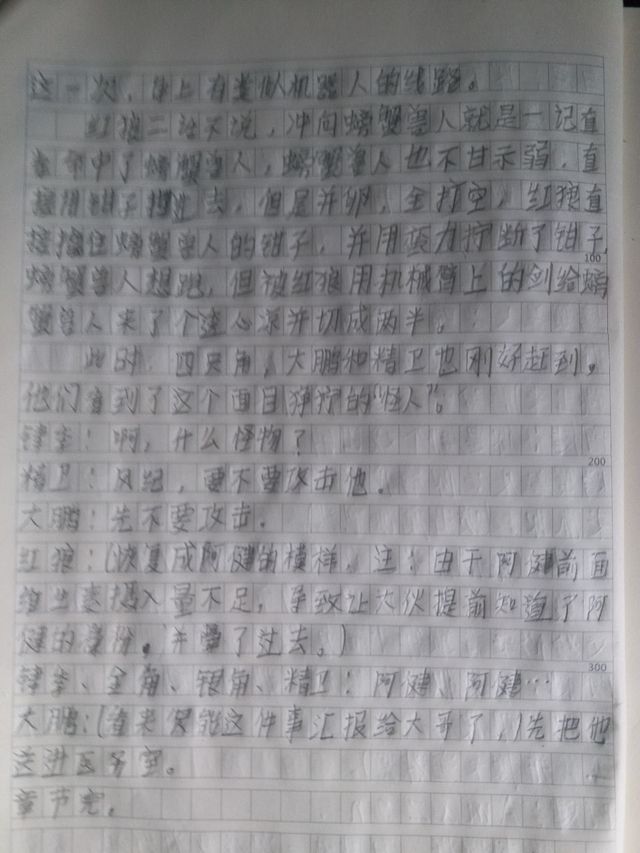 这一次，身上有类似机器人的线路。
红狼二话不说，冲向螃蟹兽人就是一记直
拳命中了螃蟹兽人，螃蟹兽人也不甘示弱，直
接用钳子 过去，但是并卵，全打空，红狼直
接 住螃蟹兽人的钳子，并用蛮力拧断了钳子，
螃蟹兽人想跑，但被红狼用机械臂上的剑给螃
蟹兽人来了个透心凉并切成两半。
此时，四只角，大鹏和精卫也刚好赶到。
他们看到了这个面目狰狞的“怪人”。
犀：啊，什么怪物？
精卫：风纪，要不要攻击他。
大鹏：先不要攻击。
红狼：（恢复成阿健的模样，注：由于阿健前面
维生素摄入量不足，导致让大伙提前知道了阿
健的身份。并晕了过去。）
金角、银角、精卫：阿健、阿健…
大鹏：（看来只能这件事汇报给大哥了，）先把他
送进医务室。
章节完。
100
200
300